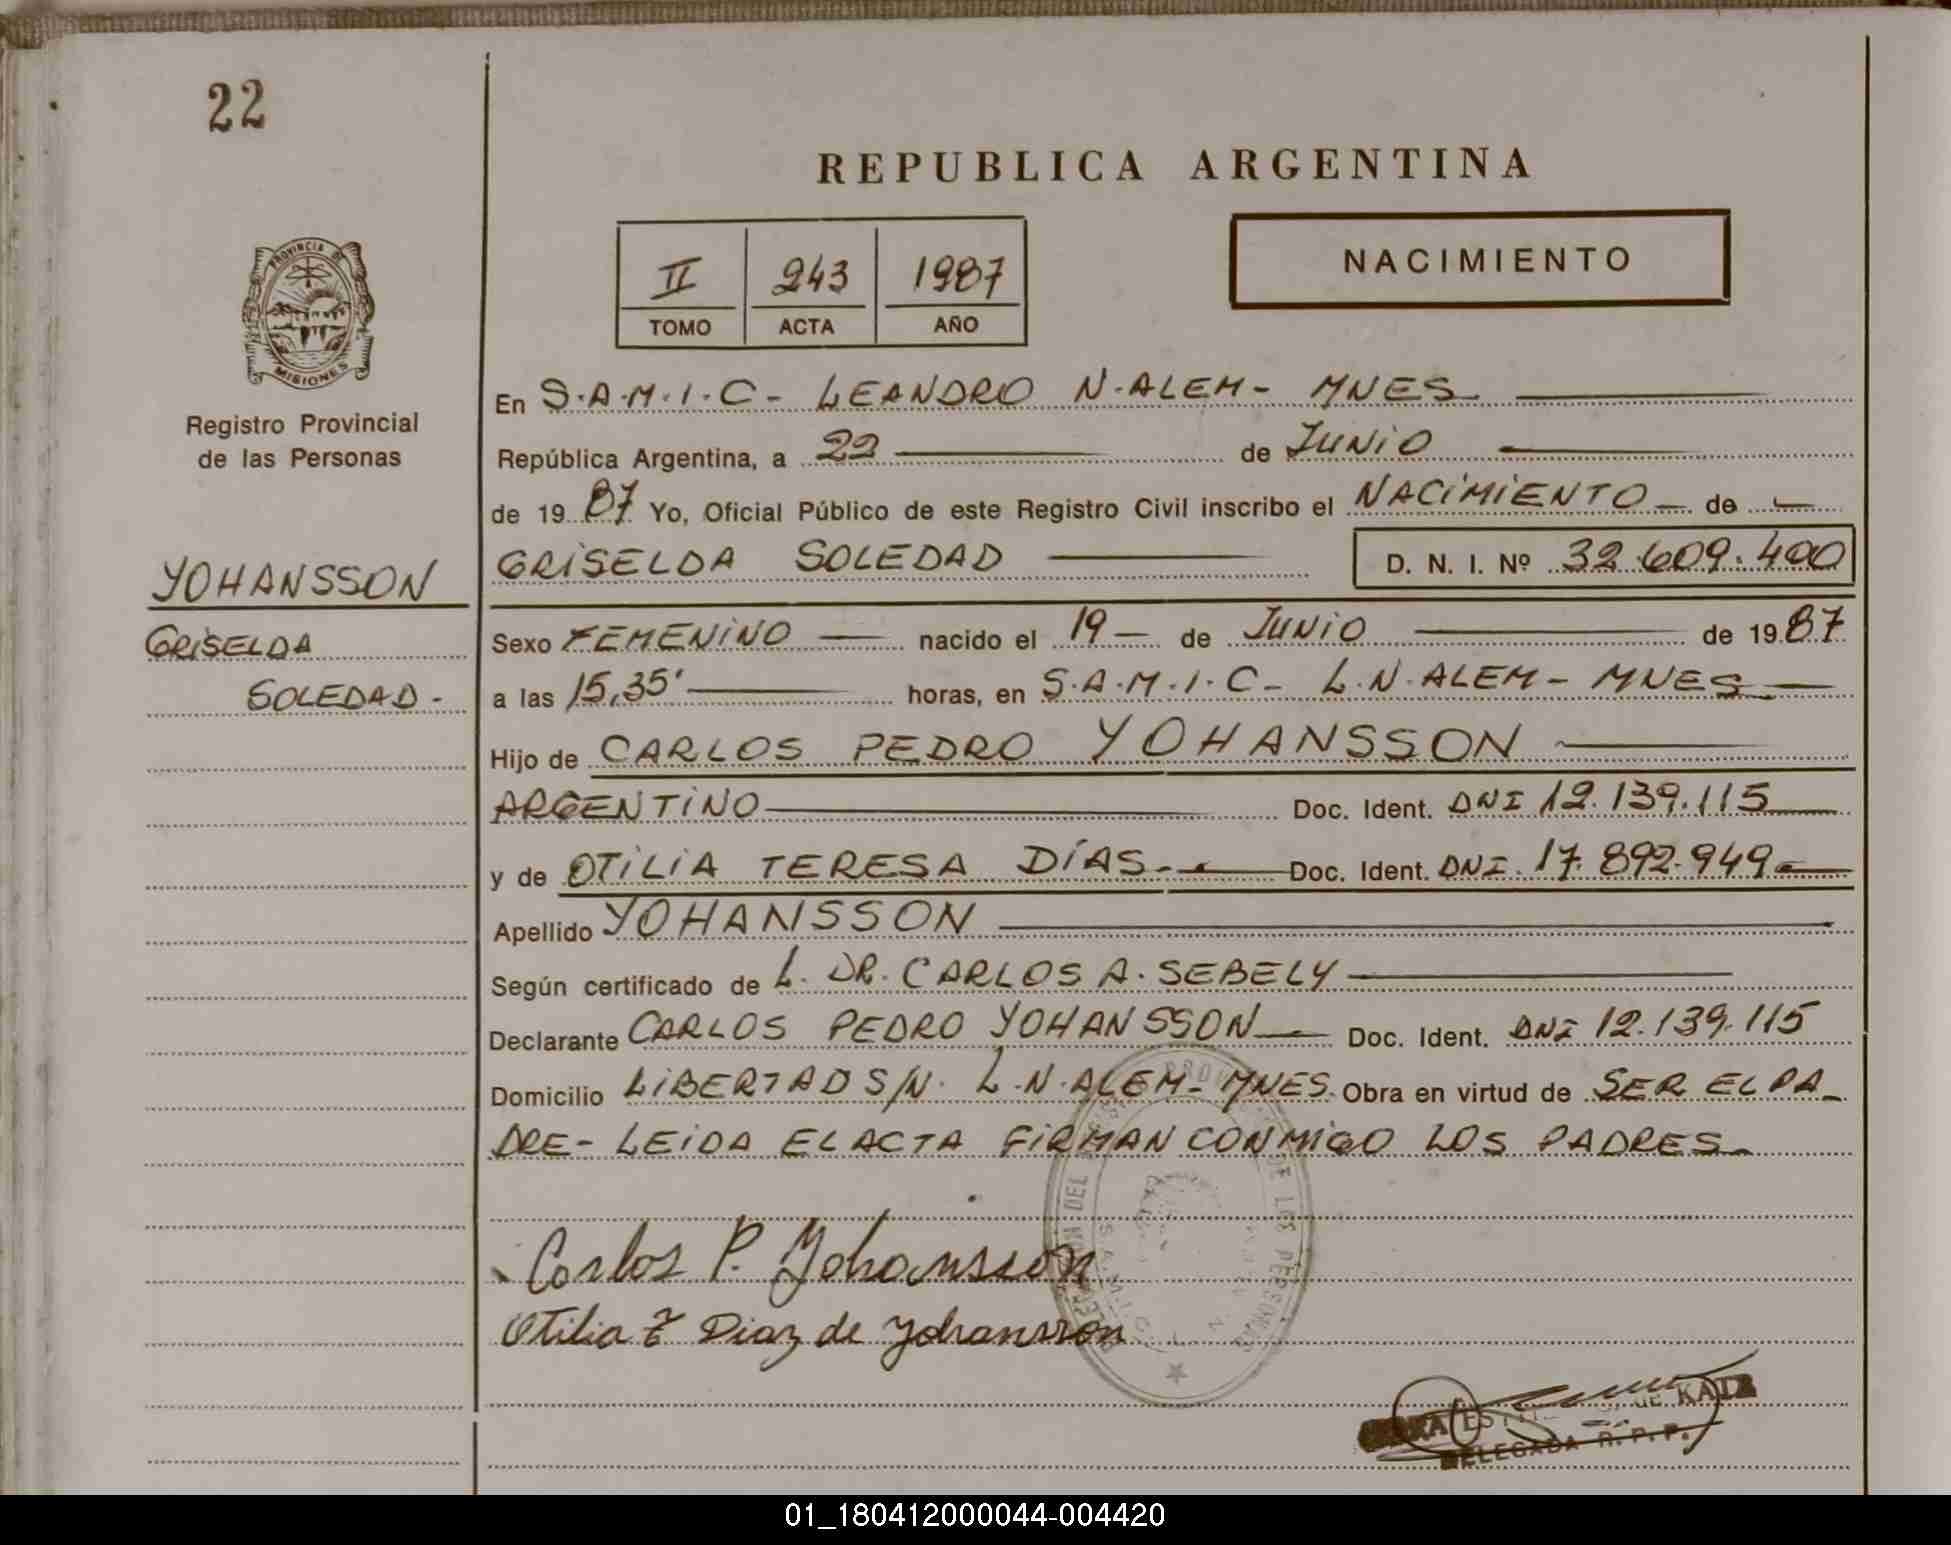 22
REPUBLICA ARGENTINA
PROVINCIA DE
MISIONES
Registro Provincial
de las Personas
II 243 1987
TOMO ACTA AÑO
NACIMIENTO
En S.A.M.I.C- LEANDRO N.ALEM- MNES
República Argentina, a 22 de JUNIO
de 1987 Yo, Oficial Público de este Registro Civil inscribo el NACIMIENTO de
GRISELDA SOLEDAD D. N. I. Nº 32.609.400
YOHANSSON
GRISELDA
SOLEDAD-
Sexo FEMENINO nacido el 19 de JUNIO de 1987
a las 15,35' horas, en S.A.M.I.C- L.N.ALEM- MNES
Hijo de CARLOS PEDRO YOHANSSON
ARGENTINO Doc. Ident. DNI 12.139.115
y de OTILIA TERESA DÍAS.- Doc. Ident. DNI. 17.892.949
Apellido YOHANSSON
Según certificado de L. DR. CARLOS A. SEBELY
Declarante CARLOS PEDRO YOHANSSON Doc. Ident. DNI 12.139.115
Domicilio LIBERTAD S/N. L.N.ALEM- MNES. Obra en virtud de SER EL PA-
DRE- LEIDA EL ACTA FIRMAN CONMIGO LOS PADRES-
Carlos P. Yohansson
Otilia T Diaz de Yohansson
DE KATZ
DELEGADA R.P.P.
01_180412000044-004420